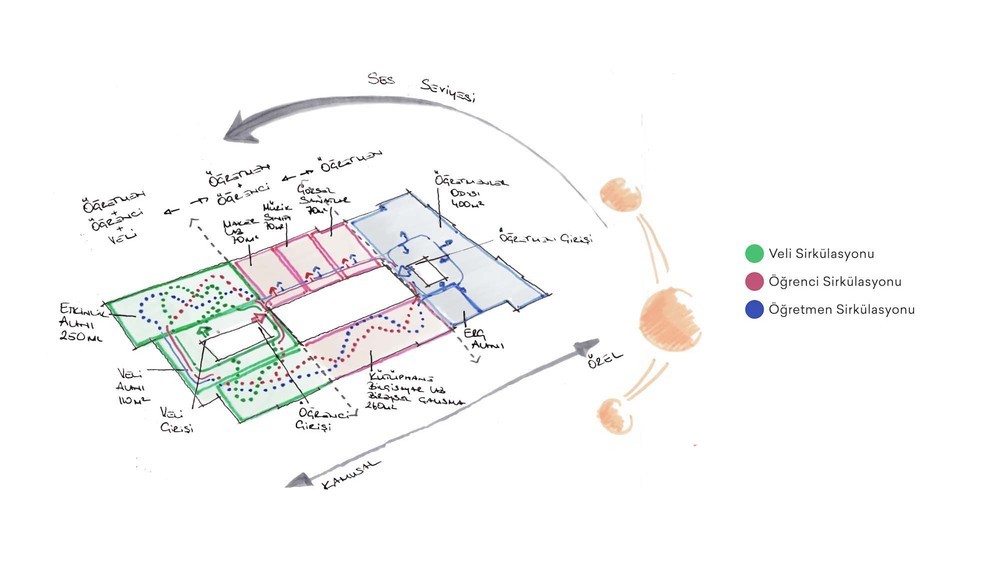 SES SEVİYESİ
ÖĞRETMEN
+
ÖĞRENCİ
+
VELİ
ÖĞRETMEN
+
ÖĞRENCİ
ÖĞRETMEN
MAKER
LAB
70m²
MÜZİK
SINIFI
70m²
GÖRSEL
SANATLAR
70m²
ÖĞRETMENLER
ODASI
400m²
ÖĞRETMEN GİRİŞİ
ETKİNLİK
ALANI
250m²
VELİ
ALANI
110m²
VELİ
GİRİŞİ
ÖĞRENCİ
GİRİŞİ
KÜTÜPHANE
BİLGİSAYAR LAB
BİREYSEL ÇALIŞMA
260m²
ERG
ALANI
ÖZEL
KAMUSAL
Veli Sirkülasyonu
Öğrenci Sirkülasyonu
Öğretmen Sirkülasyonu